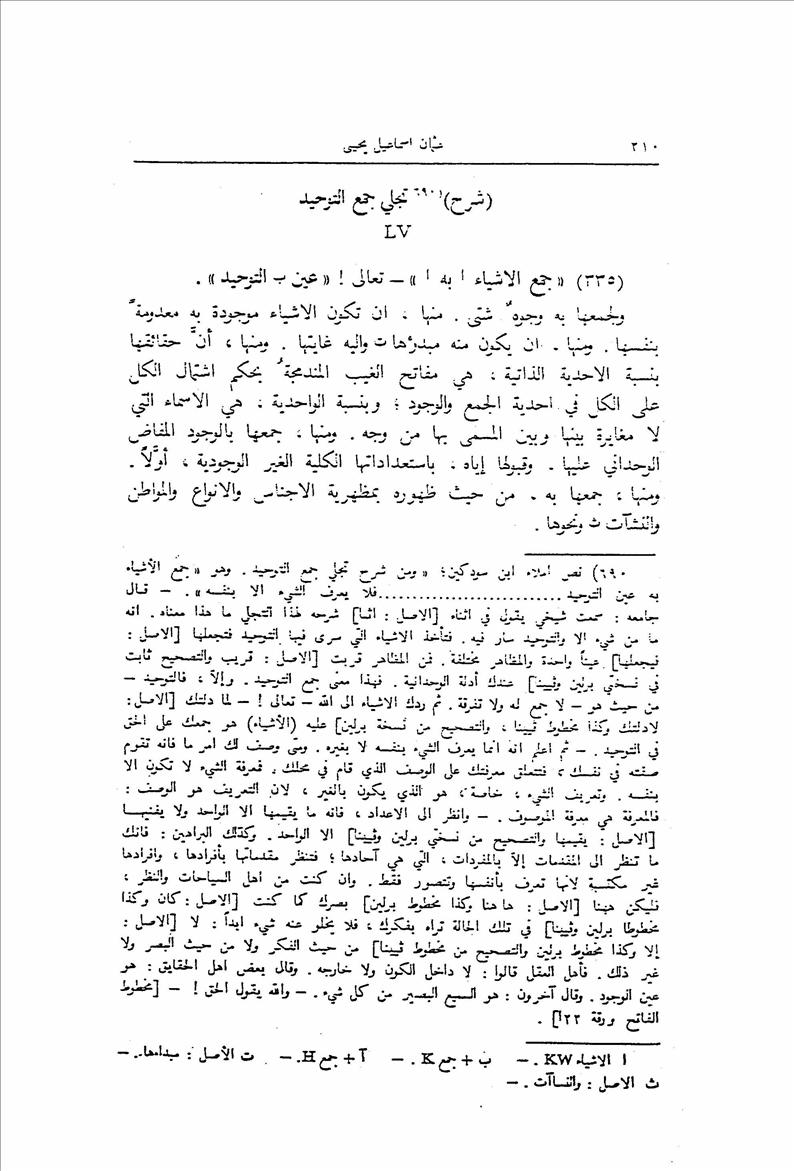 ٢١٠ عثمان اسماعيل يحيى
(شرح)⁽٦٩٠ تجلي جمع التوحيد
LV
(٣٣٥) « جمع الاشياء ا به ا » – تعالى ! « عين ب التوحيد » .
ولجمعها به وجوهٌ شتى . منها ، ان تكون الاشياء موجودة به معدومةً
بنفسها . ومنها . ان يكون منه مبدؤها ت واليه غايتها . ومنها ، أنَّ حقائقها
بنسبة الاحدية الذاتية ، هي مفاتح الغيب المندمجةُ بحكم اشتمال الكل
على الكل في احدية الجمع والوجود ؛ وبنسبة الواحدية ، هي الاسماء التي
لا مغايرة بينها وبين المسمى بها من وجه . ومنها ، جمعها بالوجود المفاض
الوحداني عليها . وقبولها إياه ، باستعداداتها الكلية الغير الوجودية ، أوَّلاً .
ومنها ، جمعها به . من حيث ظهوره بمظهرية الاجناس والانواع والمواطن
والنشآت ث ونحوها .
٦٩٠) نص املاء ابن سودكين؛ « ومن شرح تجلي جمع التوحيد . وهو « جمع الأشياء
به عين التوحيد ........................... فلا يعرف الشيء الا بنفسه » . – قال
جامعه : سمعت شيخي يقول في اثناء [الاصل : اثنا] شرحه لهذا التجلي ما هذا معناه . انه
ما من شيء الا والتوحيد سار فيه . فتأخذ الاشياء التي سرى فيها التوحيد فتجعلها [الاصل :
فيجعلها] عيناً واحدة والمظاهر مختلفة . فمن المظاهر قربت [الاصل : قريب والتصحيح ثابت
في نسختي برلين وفيينا] عندك أدلة الوحدانية . فهذا معنى جمع التوحيد . وإلا ، فالتوحيد –
من حيث هو – لا جمع له ولا تفرقة . ثم ردك الاشياء الى الله – تعالى ! – لما دلتك [الاصل :
لادلتك وكذا مخطوط فيينا ، والتصحيح من نسخة برلين] عليه (الأشياء) هو جمعك على الحق
في التوحيد . – ثم اعلم انه انما يعرف الشيء بنفسه لا بغيره . ومتى وصف لك امر ما فانه تقوم
صفته في نفسك ، فتتعلق معرفتك على الوصف الذي قام في محلك . فمعرفة الشيء لا تكون الا
بنفسه . وتعريف الشيء ، خاصة ، هو الذي يكون بالغير ، لان التعريف هو الوصف :
فالمعرفة هي معرفة الموصوف . – وانظر الى الاعداد ، فانه ما يقيمها الا الواحد ولا يفنيها
[الاصل : يقيمها والتصحيح من نسختي برلين وفيينا] الا الواحد . وكذلك البراهين : فانك
ما تنظر الى المقدمات إلا بالمفردات ، التي هي آحادها ؛ فتنظر مقدماتها بأفرادها ، وافرادها
غير مكتسبة لانها تعرف بأنفسها وتتصور فقط . وان كنت من اهل السياحات والنظر ،
فليكن همنا [الاصل : هاهنا وكذا مخطوط برلين] بصرك كما كنت [الاصل : كان وكذا
مخطوطا برلين وفيينا] في تلك الحالة تراه بفكرك ، فلا يخلو عنه شيء ابداً : لا [الاصل :
إلا وكذا مخطوط برلين والتصحيح من مخطوط فيينا] من حيث الفكر ولا من حيث البصر ولا
غير ذلك . فأهل العقل قالوا : لا داخل الكون ولا خارجه . وقال بعض اهل الحقايق : هو
عين الوجود . وقال آخرون : هو السميع البصير من كل شيء . – والله يقول الحق ! – [مخطوط
الفاتح ورقة ٢٢ا] .
ا الاشياء KW . – ب + جمع K . – آ + جمع H . – ت الأصل : مبداءها . –
ث الاصل : والنساآت . –